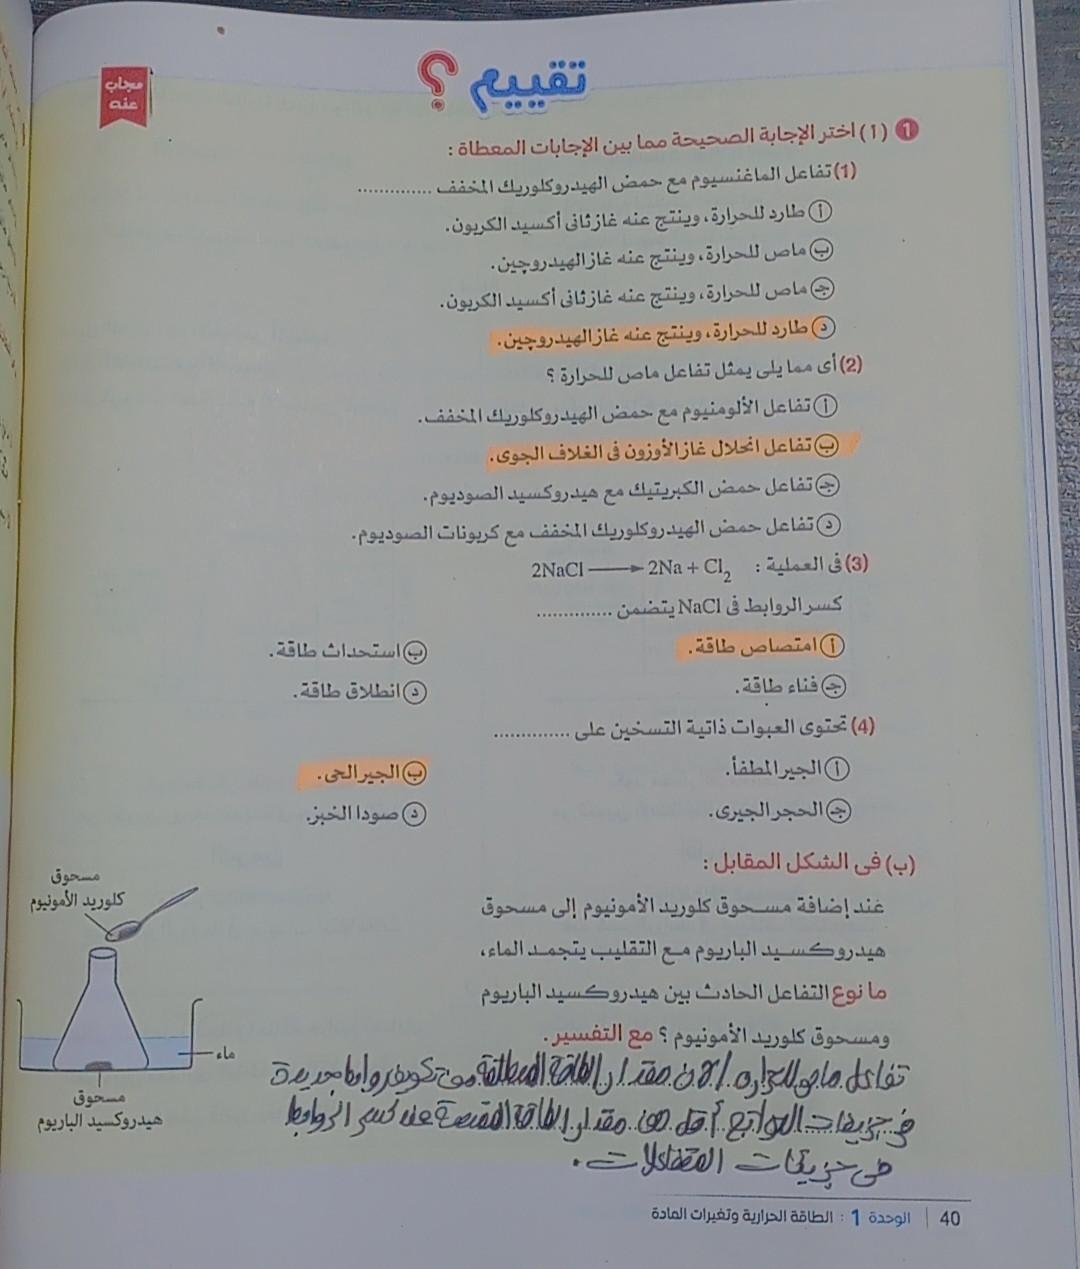 تقييم ؟
مجاب عنه
1 (أ) اختر الإجابة الصحيحة مما بين الإجابات المعطاة :
(1) تفاعل الماغنسيوم مع حمض الهيدروكلوريك المخفف ..............
أ طارد للحرارة، وينتج عنه غاز ثانى أكسيد الكربون.
ب ماص للحرارة، وينتج عنه غاز الهيدروچين.
ج ماص للحرارة، وينتج عنه غاز ثانى أكسيد الكربون.
د طارد للحرارة، وينتج عنه غاز الهيدروچين.
(2) أى مما يلى يمثل تفاعل ماص للحرارة ؟
أ تفاعل الألومنيوم مع حمض الهيدروكلوريك المخفف.
ب تفاعل انحلال غاز الأوزون فى الغلاف الجوى.
ج تفاعل حمض الكبريتيك مع هيدروكسيد الصوديوم.
د تفاعل حمض الهيدروكلوريك المخفف مع كربونات الصوديوم.
(3) فى العملية : 2NaCl ⟶ 2Na + Cl₂
كسر الروابط فى NaCl يتضمن ..............
أ امتصاص طاقة. ب استحداث طاقة.
ج فناء طاقة. د انطلاق طاقة.
(4) تحتوى العبوات ذاتية التسخين على ..............
أ الجير المطفأ. ب الجير الحى.
ج الحجر الجيرى. د صودا الخبز.
(ب) فى الشكل المقابل :
عند إضافة مسحوق كلوريد الأمونيوم إلى مسحوق
هيدروكسيد الباريوم مع التقليب يتجمد الماء،
ما نوع التفاعل الحادث بين هيدروكسيد الباريوم
ومسحوق كلوريد الأمونيوم ؟ مع التفسير.
مسحوق
كلوريد الأمونيوم
ماء
مسحوق
هيدروكسيد الباريوم
تفاعل ماص للحراره / لأن مقدار الطاقة المنطلقة من تكوين روابط جديدة
فى جزيئات النواتج أقل من مقدار الطاقة الممتصة عند كسر الروابط
فى جزيئات المتفاعلات.
40 | الوحدة 1 : الطاقة الحرارية وتغيرات المادة